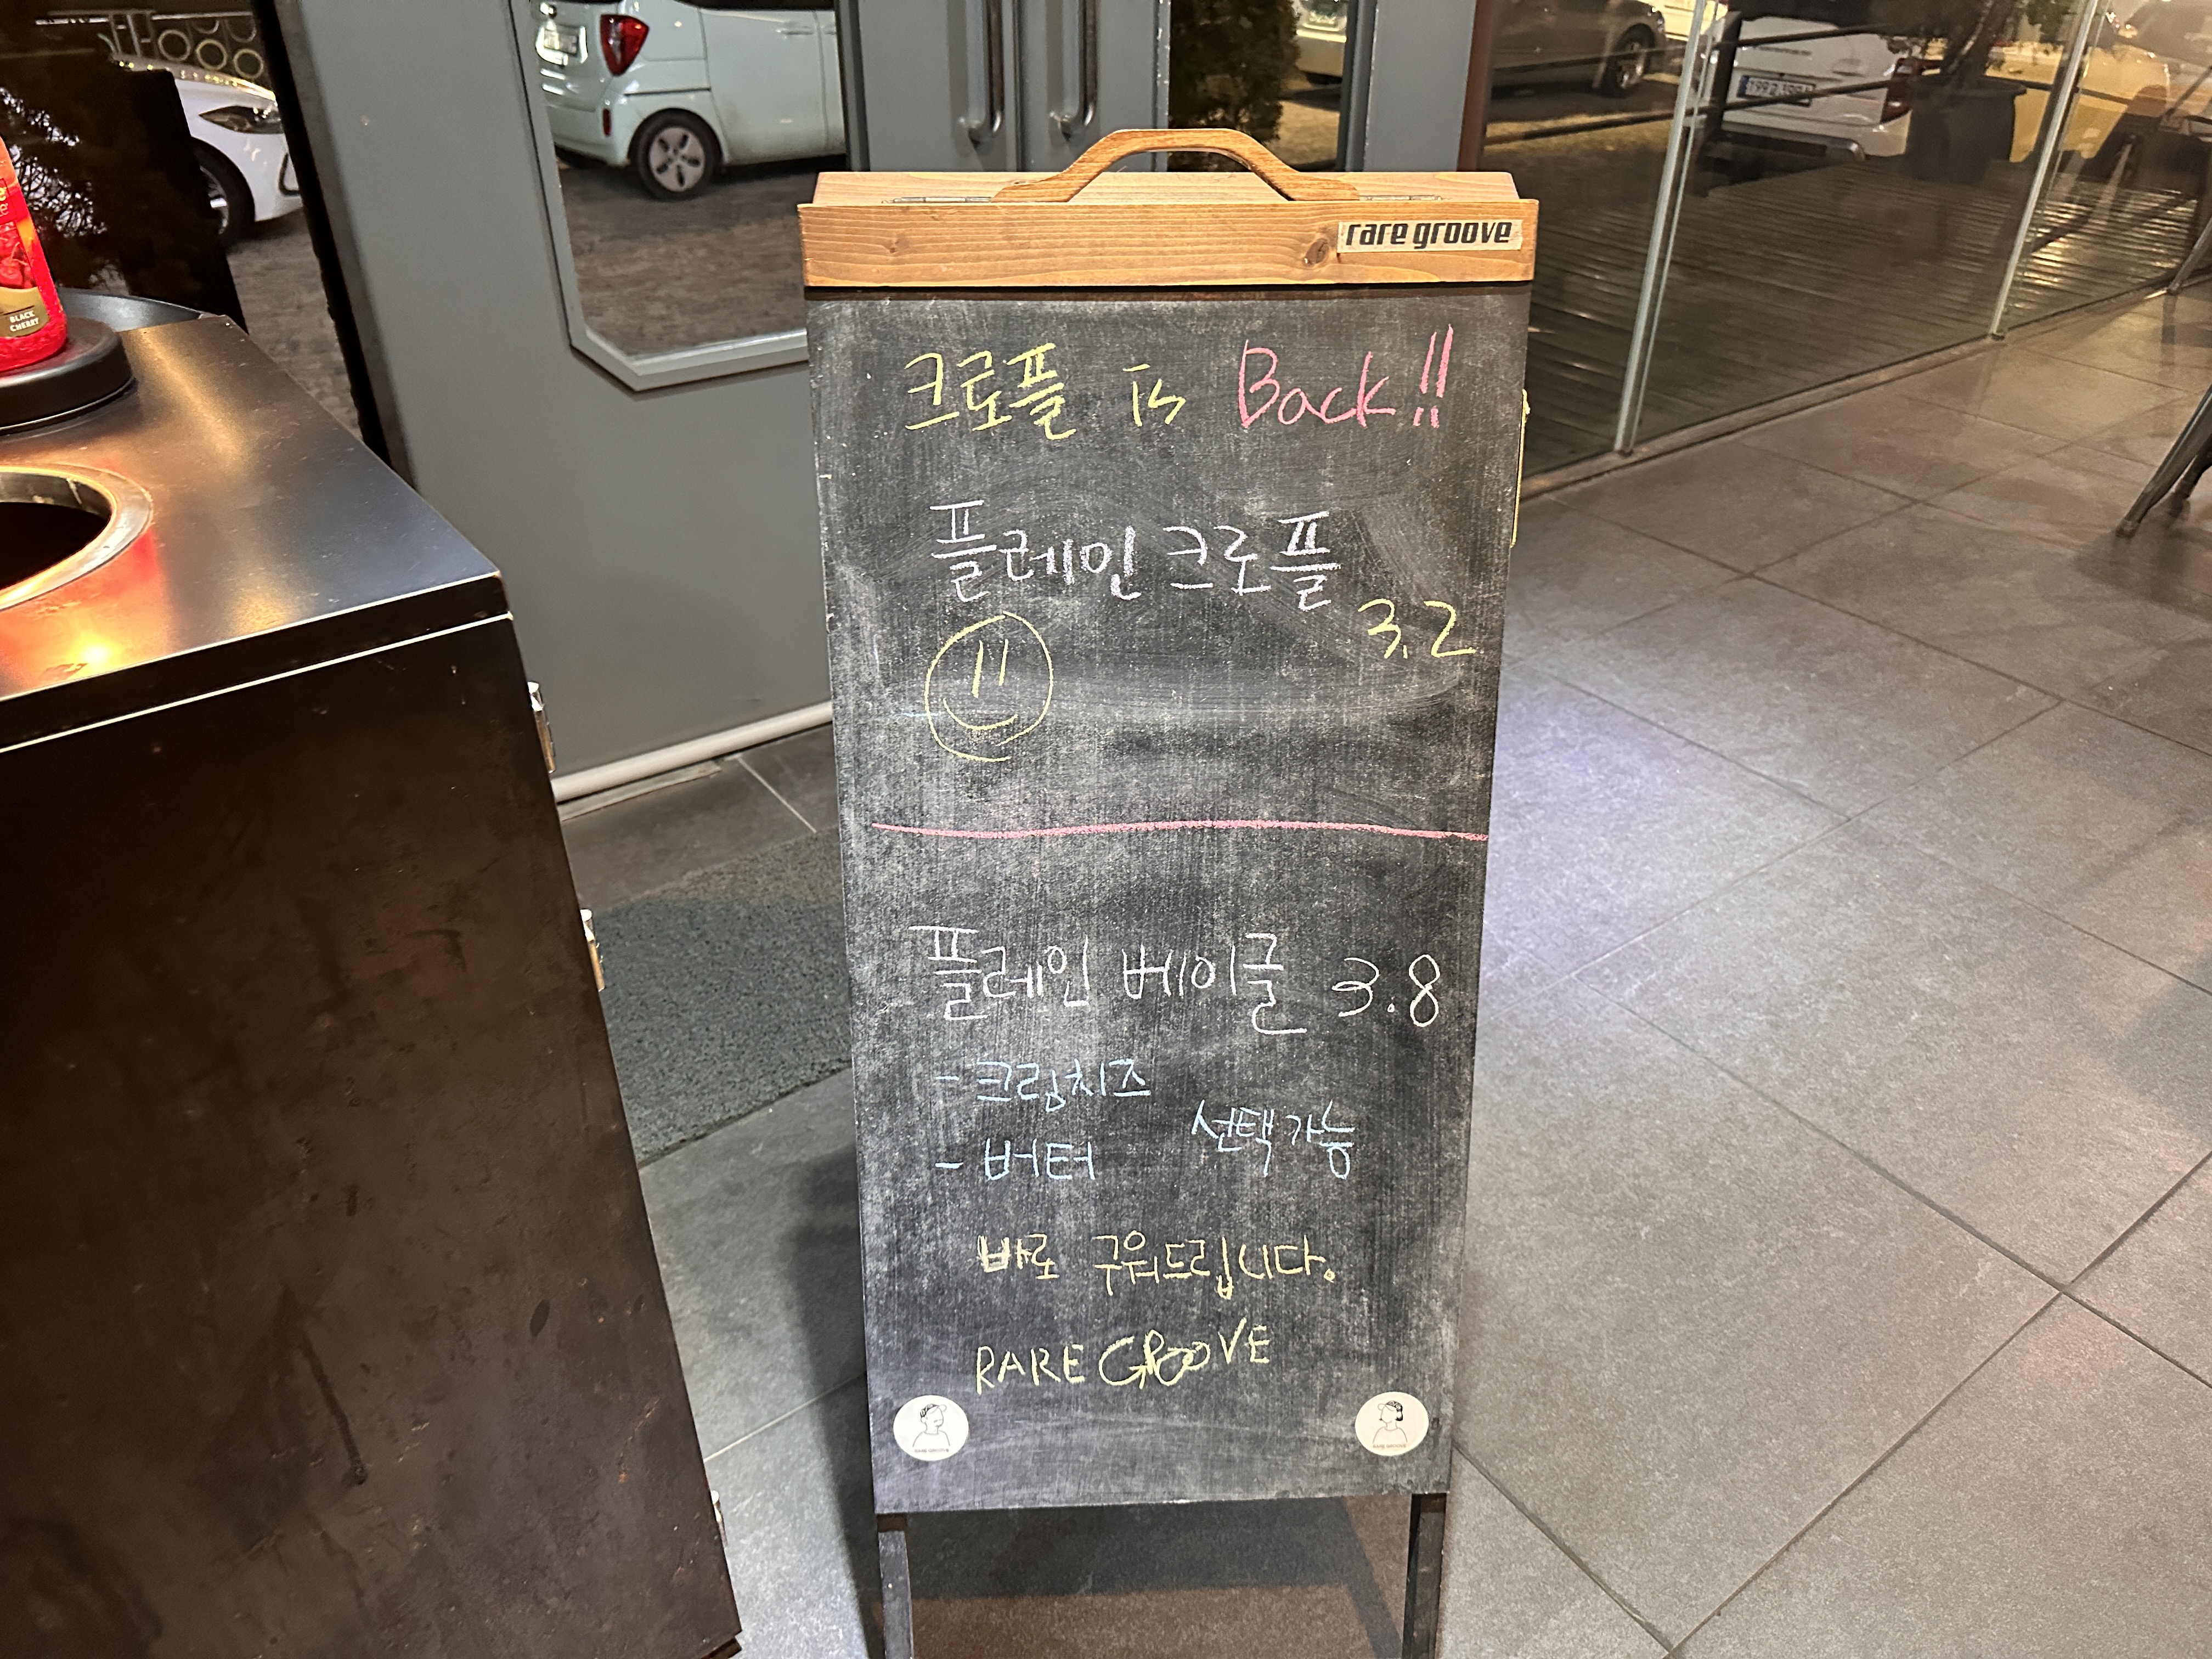 rare groove
크로플 is Back!!
플레인 크로플
3.2
플레인 베이글 3.8
- 크림치즈
- 버터
선택가능
바로 구워드립니다.
RARE GROOVE
RARE GROOVE
RARE GROOVE
BLACK
CHERRY